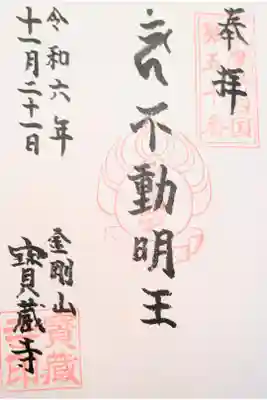 奉拝
不動明王
令和六年
十一月二十一日
金剛山
寶蔵寺